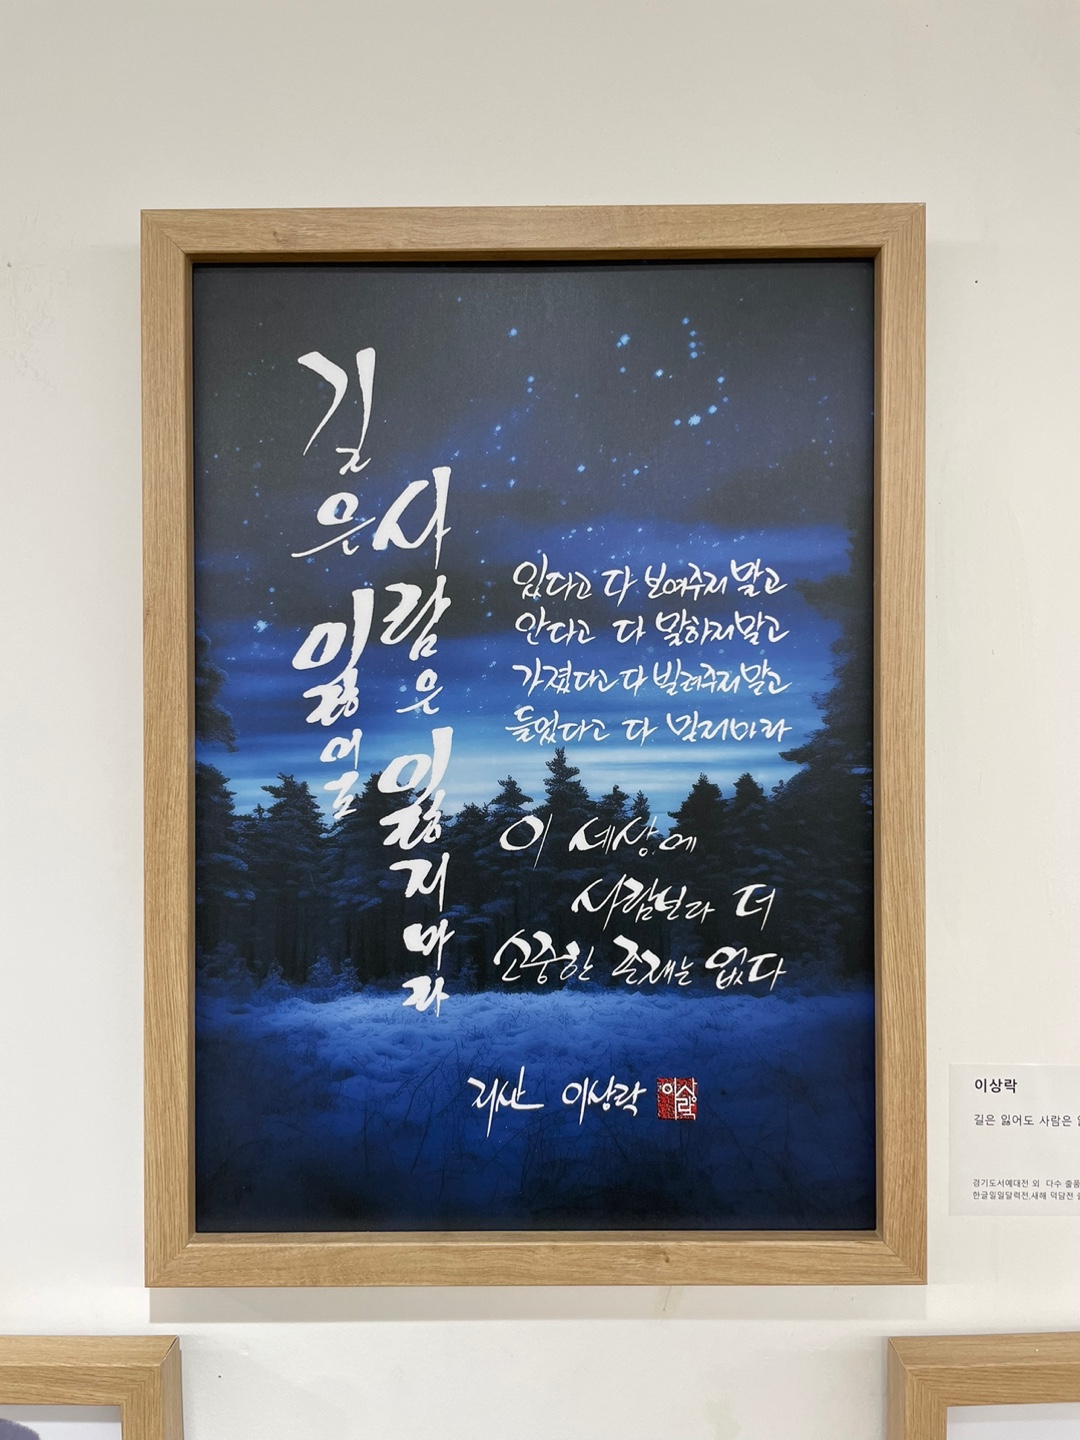 길은 잃어도
사람은 잃지마라
있다고 다 보여주지말고
안다고 다 말하지말고
가졌다고 다 빌려주지말고
들었다고 다 믿지마라
이 세상에
사람보다 더
소중한 존재는 없다
이상락
이상락
이상락
길은 잃어도 사람은
경기도서예대전 외 다수 출품
한글일일달력전,새해 덕담전